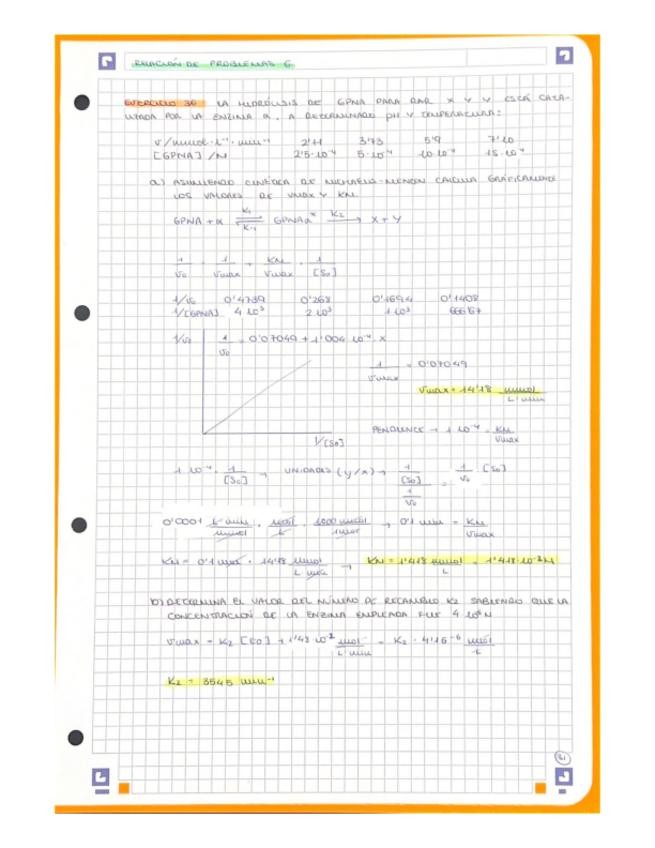 RELACIÓN DE PROBLEMAS 6
EJERCICIO 36 LA HIDRÓLISIS DE GPNA PARA DAR X Y Y ESTÁ CATA-
LIZADA POR LA ENZIMA α. A DETERMINADO pH Y TEMPERATURA:
v/mmol·L⁻¹·min⁻¹ 2'11 3'73 5'9 7'10
[GPNA]/M 2'5·10⁻⁴ 5·10⁻⁴ 10·10⁻⁴ 15·10⁻⁴
a) ASUMIENDO CINÉTICA DE MICHAELIS-MENTEN CALCULA GRÁFICAMENTE
LOS VALORES DE VMAX Y KM.
GPNA + α ⇌ GPNAα* → X + Y
K₁ K₋₁ K₂
1/v₀ = 1/Vmax + KM/Vmax · 1/[S₀]
1/v₀ 0'4739 0'268 0'1694 0'1408
1/[GPNA] 4·10³ 2·10³ 1·10³ 666'67
1/v₀
1/v₀ = 0'07049 + 1'004·10⁻⁴ x
1/Vmax = 0'07049
Vmax = 14'18 mmol/L·min
1/[S₀]
PENDIENTE → 1·10⁻⁴ = KM/Vmax
1·10⁻⁴ · 1/[S₀] → UNIDADES (y/x) → 1/[S₀] / 1/v₀ = 1/v₀ · [S₀]
0'0001 L·min/mmol · mol/L · 1000 mmol/1 mol → 0'1 min = KM/Vmax
KM = 0'1 min · 14'18 mmol/L·min → KM = 1'418 mmol/L = 1'418·10⁻³ M
b) DETERMINA EL VALOR DEL NÚMERO DE RECAMBIO K2 SABIENDO QUE LA
CONCENTRACIÓN DE LA ENZIMA EMPLEADA FUE 4·10⁻⁶ M
Vmax = K₂ [E₀] → 1'43·10⁻² mol/L·min = K₂ · 4'16⁻⁶ mol/L
K₂ = 3545 min⁻¹
31